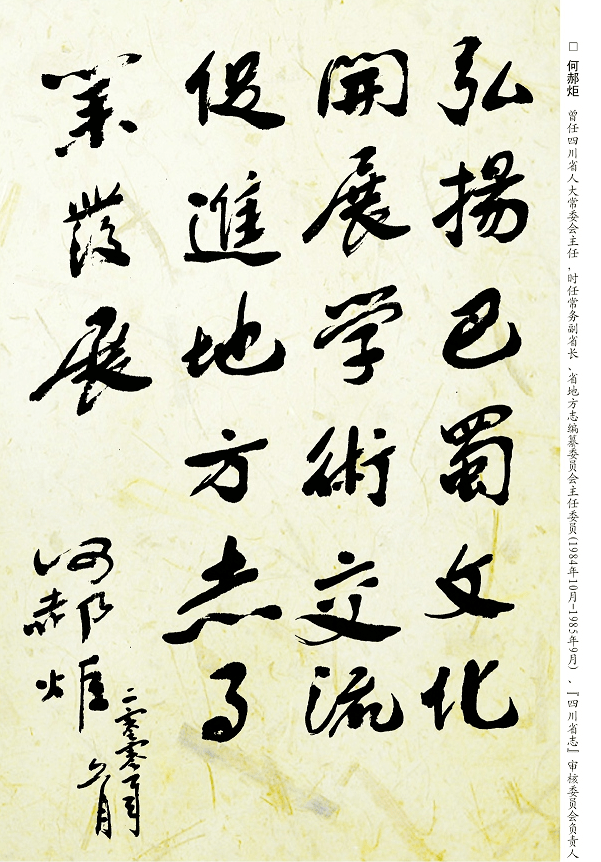 □ 何郝炬 曾任四川省人大常委会主任，时任常务副省长、省地方志编纂委员会主任委员(1984年10月-1985年9月)、『四川省志』审核委员会负责人
弘揚巴蜀文化
開展学術交流
促進地方志事
業發展
何郝炬
二零零
月